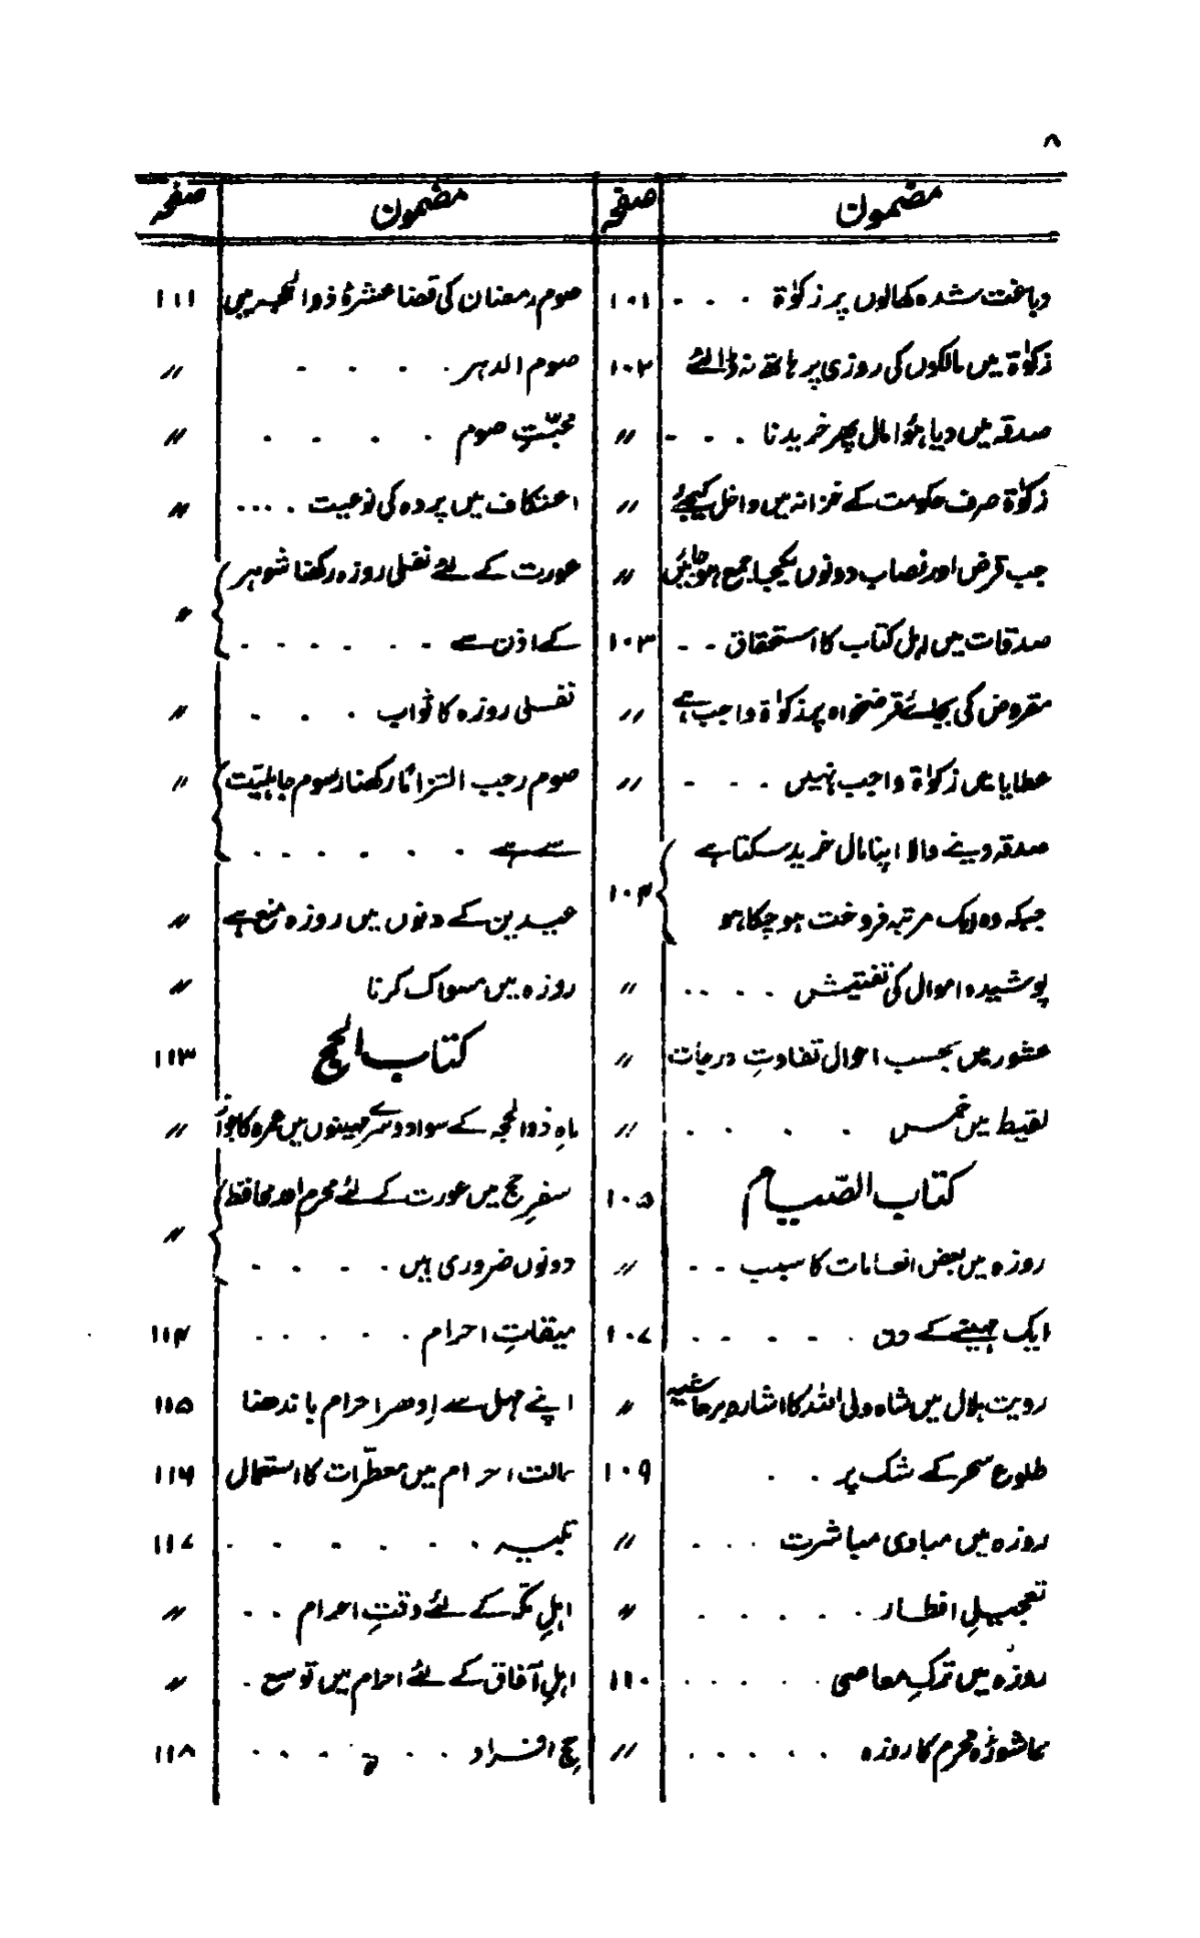 ۸
مضمون صفحہ
دباغت شدہ کھالوں پر زکوٰۃ - - - ۱۰۱
زکوٰۃ میں مالکوں کی روزی پر ہاتھ نہ ڈالئے ۱۰۲
صدقہ میں دیا ہوا مال پھر خریدنا - - - ״
زکوٰۃ صرف حکومت کے خزانہ میں داخل کیجئے ״
جب قرض اور نصاب دونوں یکجا جمع ہو جائیں ״
صدقات میں اہل کتاب کا استحقاق - - ۱۰۳
مقروض کی بجائے قرضخواہ پر زکوٰۃ واجب ہے ״
عطایا میں زکوٰۃ واجب نہیں - - - ״
صدقہ دینے والا اپنا مال خرید سکتا ہے
جبکہ وہ ایک مرتبہ فروخت ہو چکا ہو ۱۰۴
پوشیدہ اموال کی تفتیش - - - - ״
عشور میں بحسب احوال تفاوتِ درجات ״
لقیط میں خمس - - - - ״
کتاب الصّیام ۱۰۵
روزہ میں بعض انعامات کا سبب - - ״
ایک مہینے کے دن - - - - - ۱۰۷
رویت ہلال میں شاہ ولی اللہ کا اشارہ بر حاشیہ ״
طلوع سحر کے شک پر - - ۱۰۹
روزہ میں مبادی مباشرت - - - ״
تعجیلِ افطار - - - - - ״
روزہ میں ترکِ معاصی - - - - - ۱۱۰
عاشورۂ محرم کا روزہ - - - - - ״
مضمون صفحہ
صوم رمضان کی قضا عشرۂ ذوالحجہ میں ۱۱۱
صوم الدہر - - - - ״
محبّتِ صوم - - - - ״
اعتکاف میں پردہ کی نوعیت - - - - ״
عورت کے لئے نفلی روزہ رکھنا شوہر
کے اذن سے - - - - - - ״
نفلی روزہ کا ثواب - - - ״
صوم رجب التزاماً رکھنا رسوم جاہلیّت ״
سے ہے - - - - - -
عیدین کے دنوں میں روزہ منع ہے ״
روزہ میں مسواک کرنا ״
کتاب الحج ۱۱۳
ماہِ ذوالحجہ کے سوا دوسرے مہینوں میں عمرہ کا جواز ״
سفرِ حج میں عورت کے لئے محرم اور محافظ
دونوں ضروری ہیں - - - - ״
میقاتِ احرام - - - - - ۱۱۴
اپنے محل سے اِدھر احرام باندھنا ۱۱۵
حالت احرام میں معطّرات کا استعمال ۱۱۶
تلبیہ - - - - - - ۱۱۷
اہلِ مکّہ کے لئے وقتِ احرام - - ״
اہلِ آفاق کے لئے احرام میں توسیع - ״
حجِ افراد - - - - - ۱۱۸